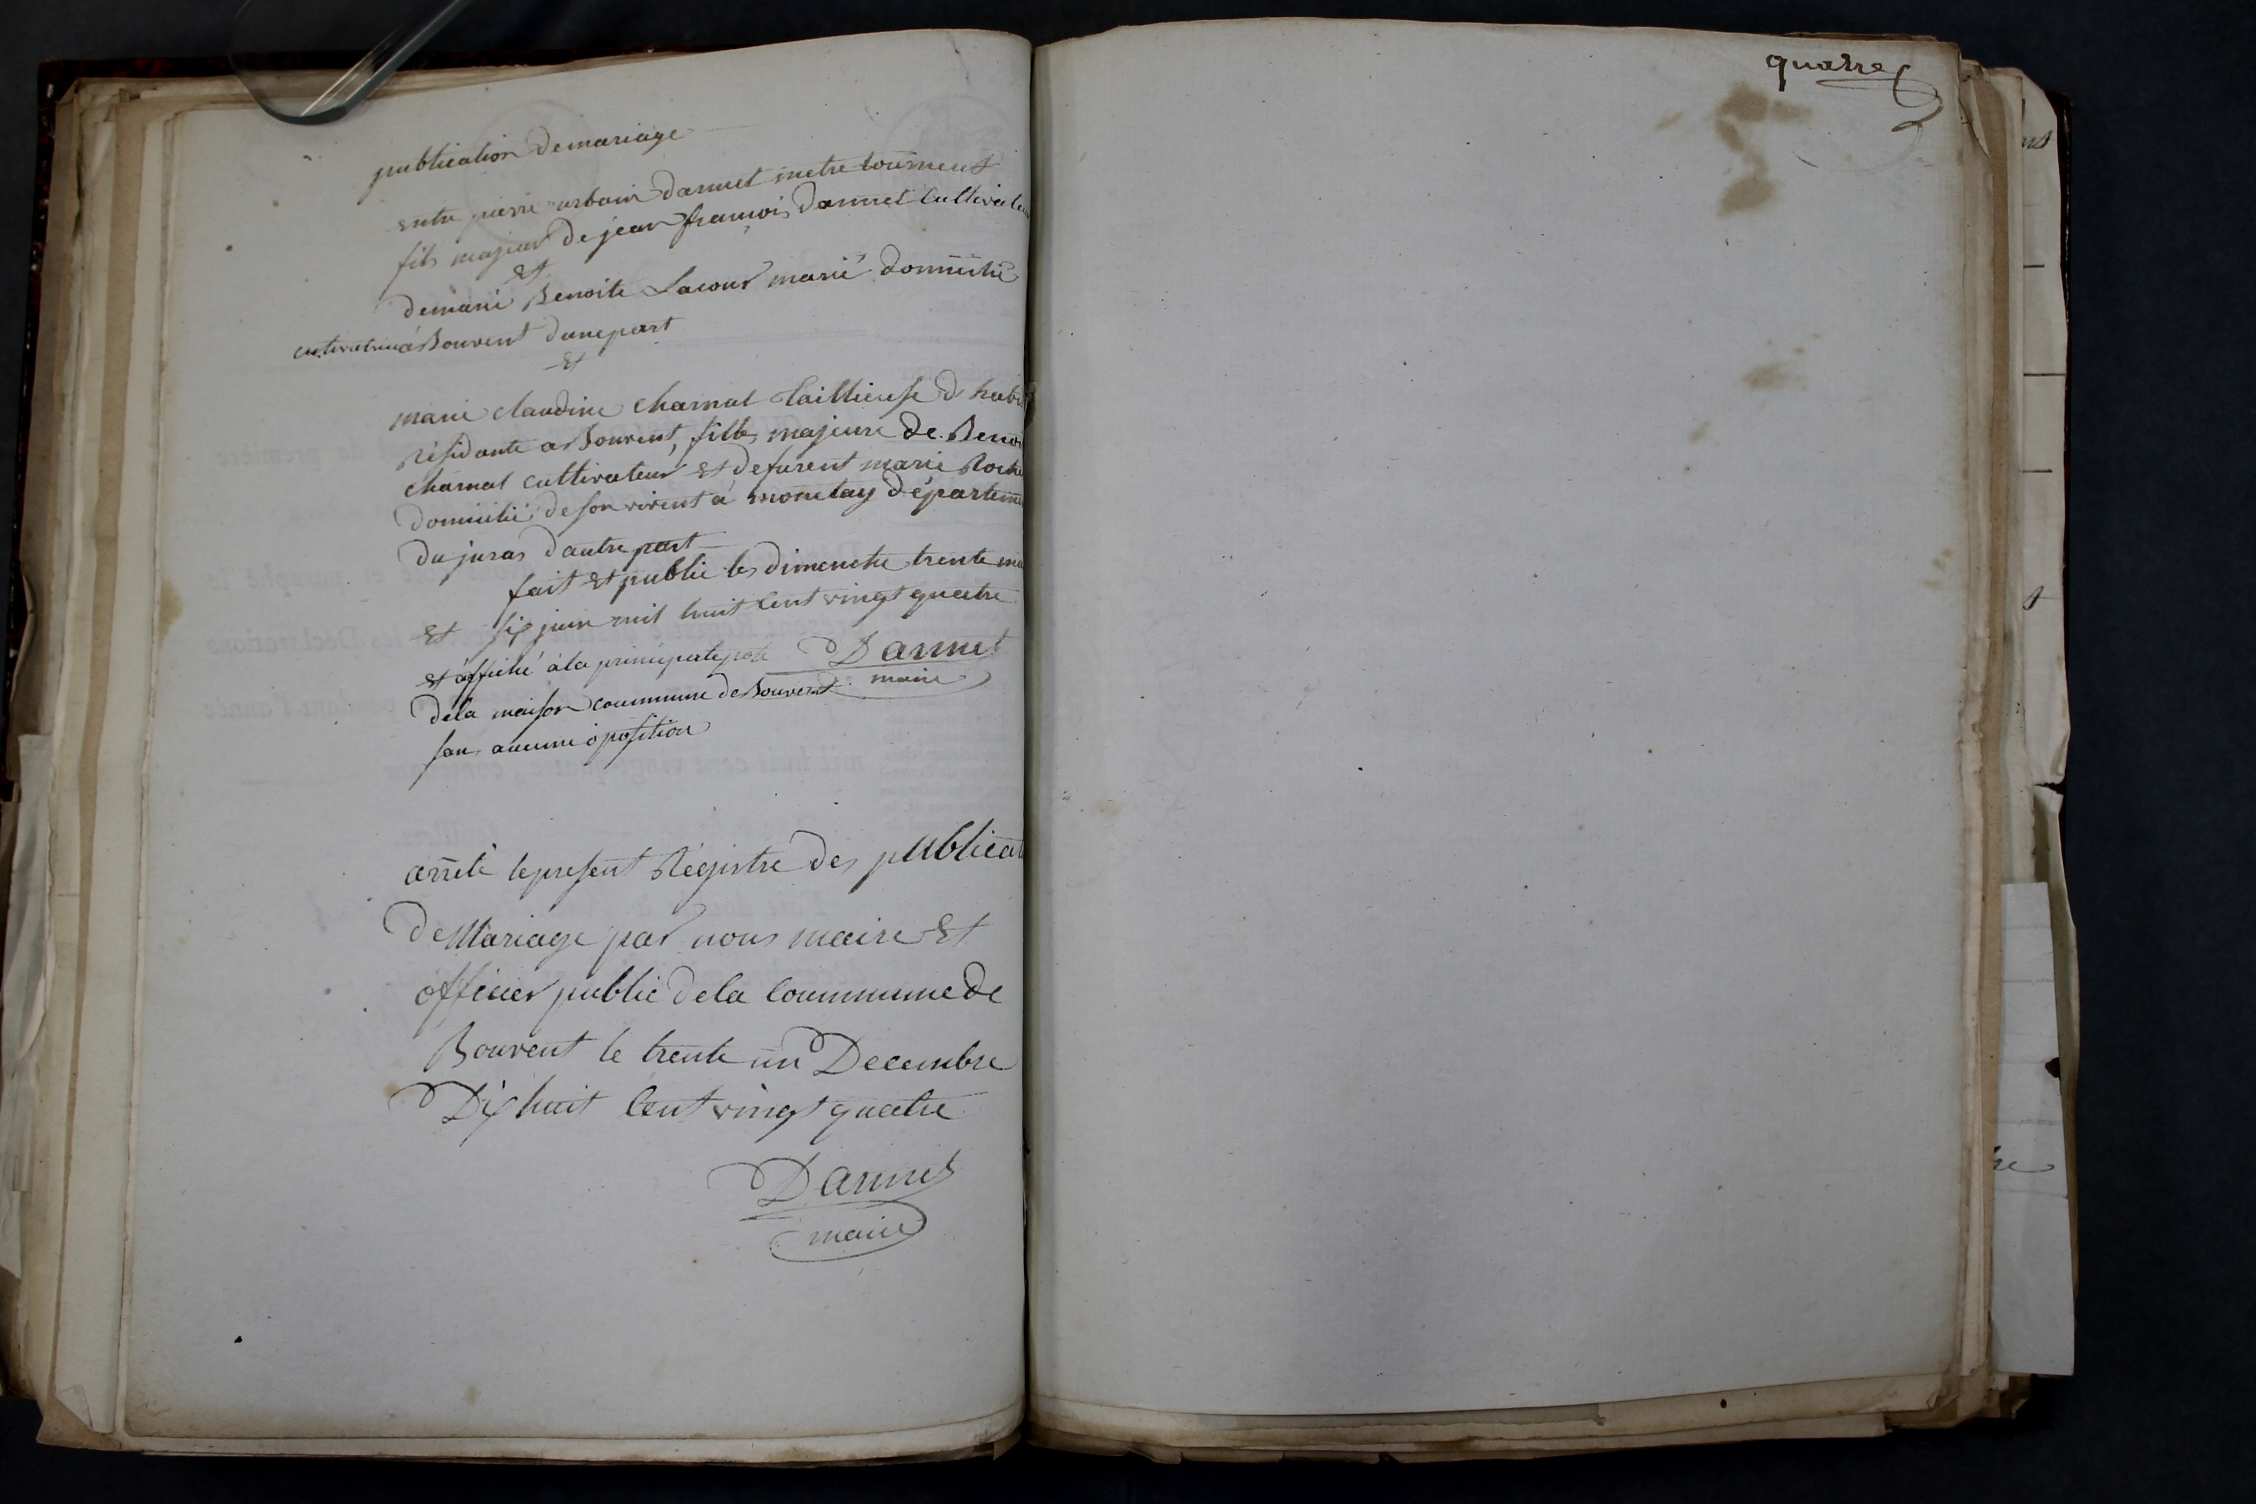 publication demariage
entre pierre urbain dannet metre tourneur
fils majeur de jean françois dannet cultivateur
et
demarie Benoite Lacour marié domicilié
cultivatrice à Bouvent dunepart
et
marie claudine charnal taillieuse d'habi
résidante a Bouvent, fille majeure de Benoi
charnal cultivateur et defunt marie Roche
domicilié deson vivent a monetay départeme
du juras d'autre part
fait et publié les dimenche trente mai
et six juin mil huit cent vingt quatre
et affiché àla principale porte Dannet
dela maison commune de Bouvent maire
sans aucune oposition
arrêté lepresent Régistre des publicat
deMariage par nous maire et
officier public dela Commune de
Bouvent le trente un Decembre
Dix huit Cent vingt quatre
Dannet
maire
quatre